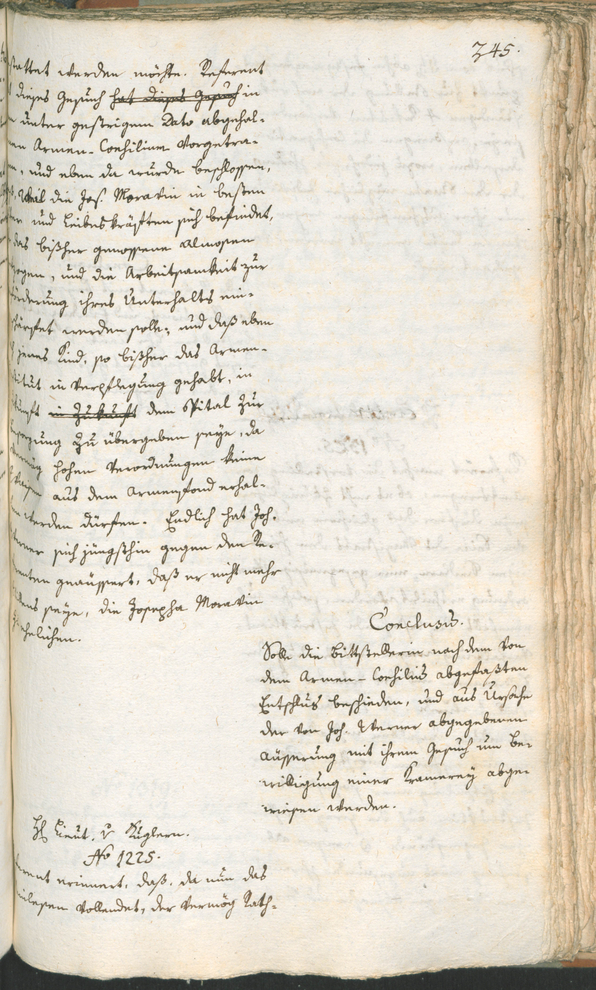 345.
stattet werden möchte. Referent
dieses Gesuch hat dieses Gesuch in
unter gestrigem Dato abgehal-
Armen-Consilium vorgetra-
, und eben da wurde beschlossen,
weil die Jos. Moravin in besten
und Leibeskräfften sich befindet,
das bißher genossene Almosen
, und die Arbeitsamkeit zur
förderung ihres Unterhalts ein-
schärfet werden solle, und daß eben
jenes Kind, so bißher das Armen-
titut in Verpflegung gehabt, in
in Zukunft dem Spital zur
sorgung zu übergeben seye, da
hohen Verordnungen keine
aus dem Armenfond erhal-
werden dürfen. Endlich hat Joh.
Werner sich jüngsthin gegen den Re-
renten geäussert, daß er nicht mehr
Willens seye, die Josepha Moravin
ehelichen.
Conclusus.
Solle die Bittstellerin nach dem von
dem Armen-Consilius abgefaßten
Entschluß beschieden, und aus Ursache
der von Joh. Werner abgegebenen
äusserung mit ihrem Gesuch um Be-
willigung einer Kramerey abge-
wiesen werden.
H Lieut. v Küglern.
No 1225.
erinnert, daß, da nun das
vollendet, der vermög Rath-